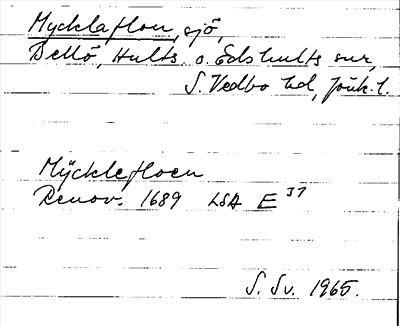 Mycklaflon, sjö,
Bellö, Hults o. Edshults snr,
S. Vedbo hd, Jönk. l.
Mÿcklefloen
Renov. 1689 LSA E 37
S. Sv. 1965.